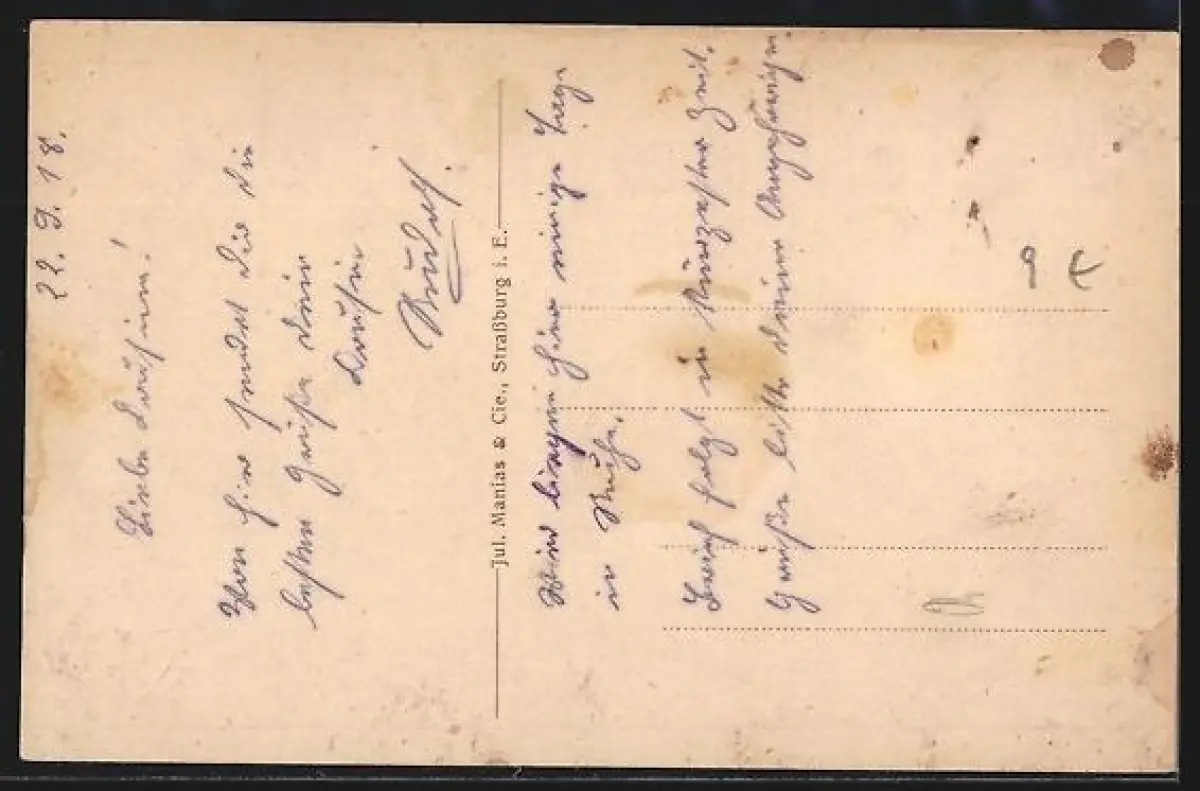 22. 9. 18.
Liebe Cousine!
Von hier sendet dir die
besten Grüße dein
Cousin
Rudolf.
Jul. Manias & Cie., Straßburg i. E.
Wir liegen hier einige Tage
in Ruhe.
Brief folgt in kürzester Zeit.
Grüße bitte deine Angehörigen.
9 €